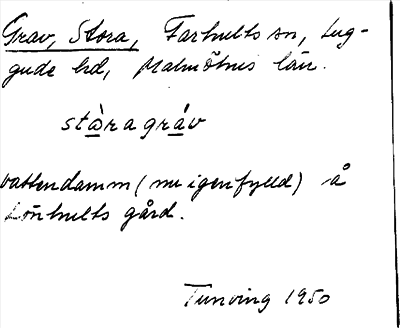 Grav, Stora, Farhults sn, Lug-
gude hd, Malmöhus län.
stàragráv
vattendamm (nu igenfylld) å
Lönhults gård.
Tunving 1950